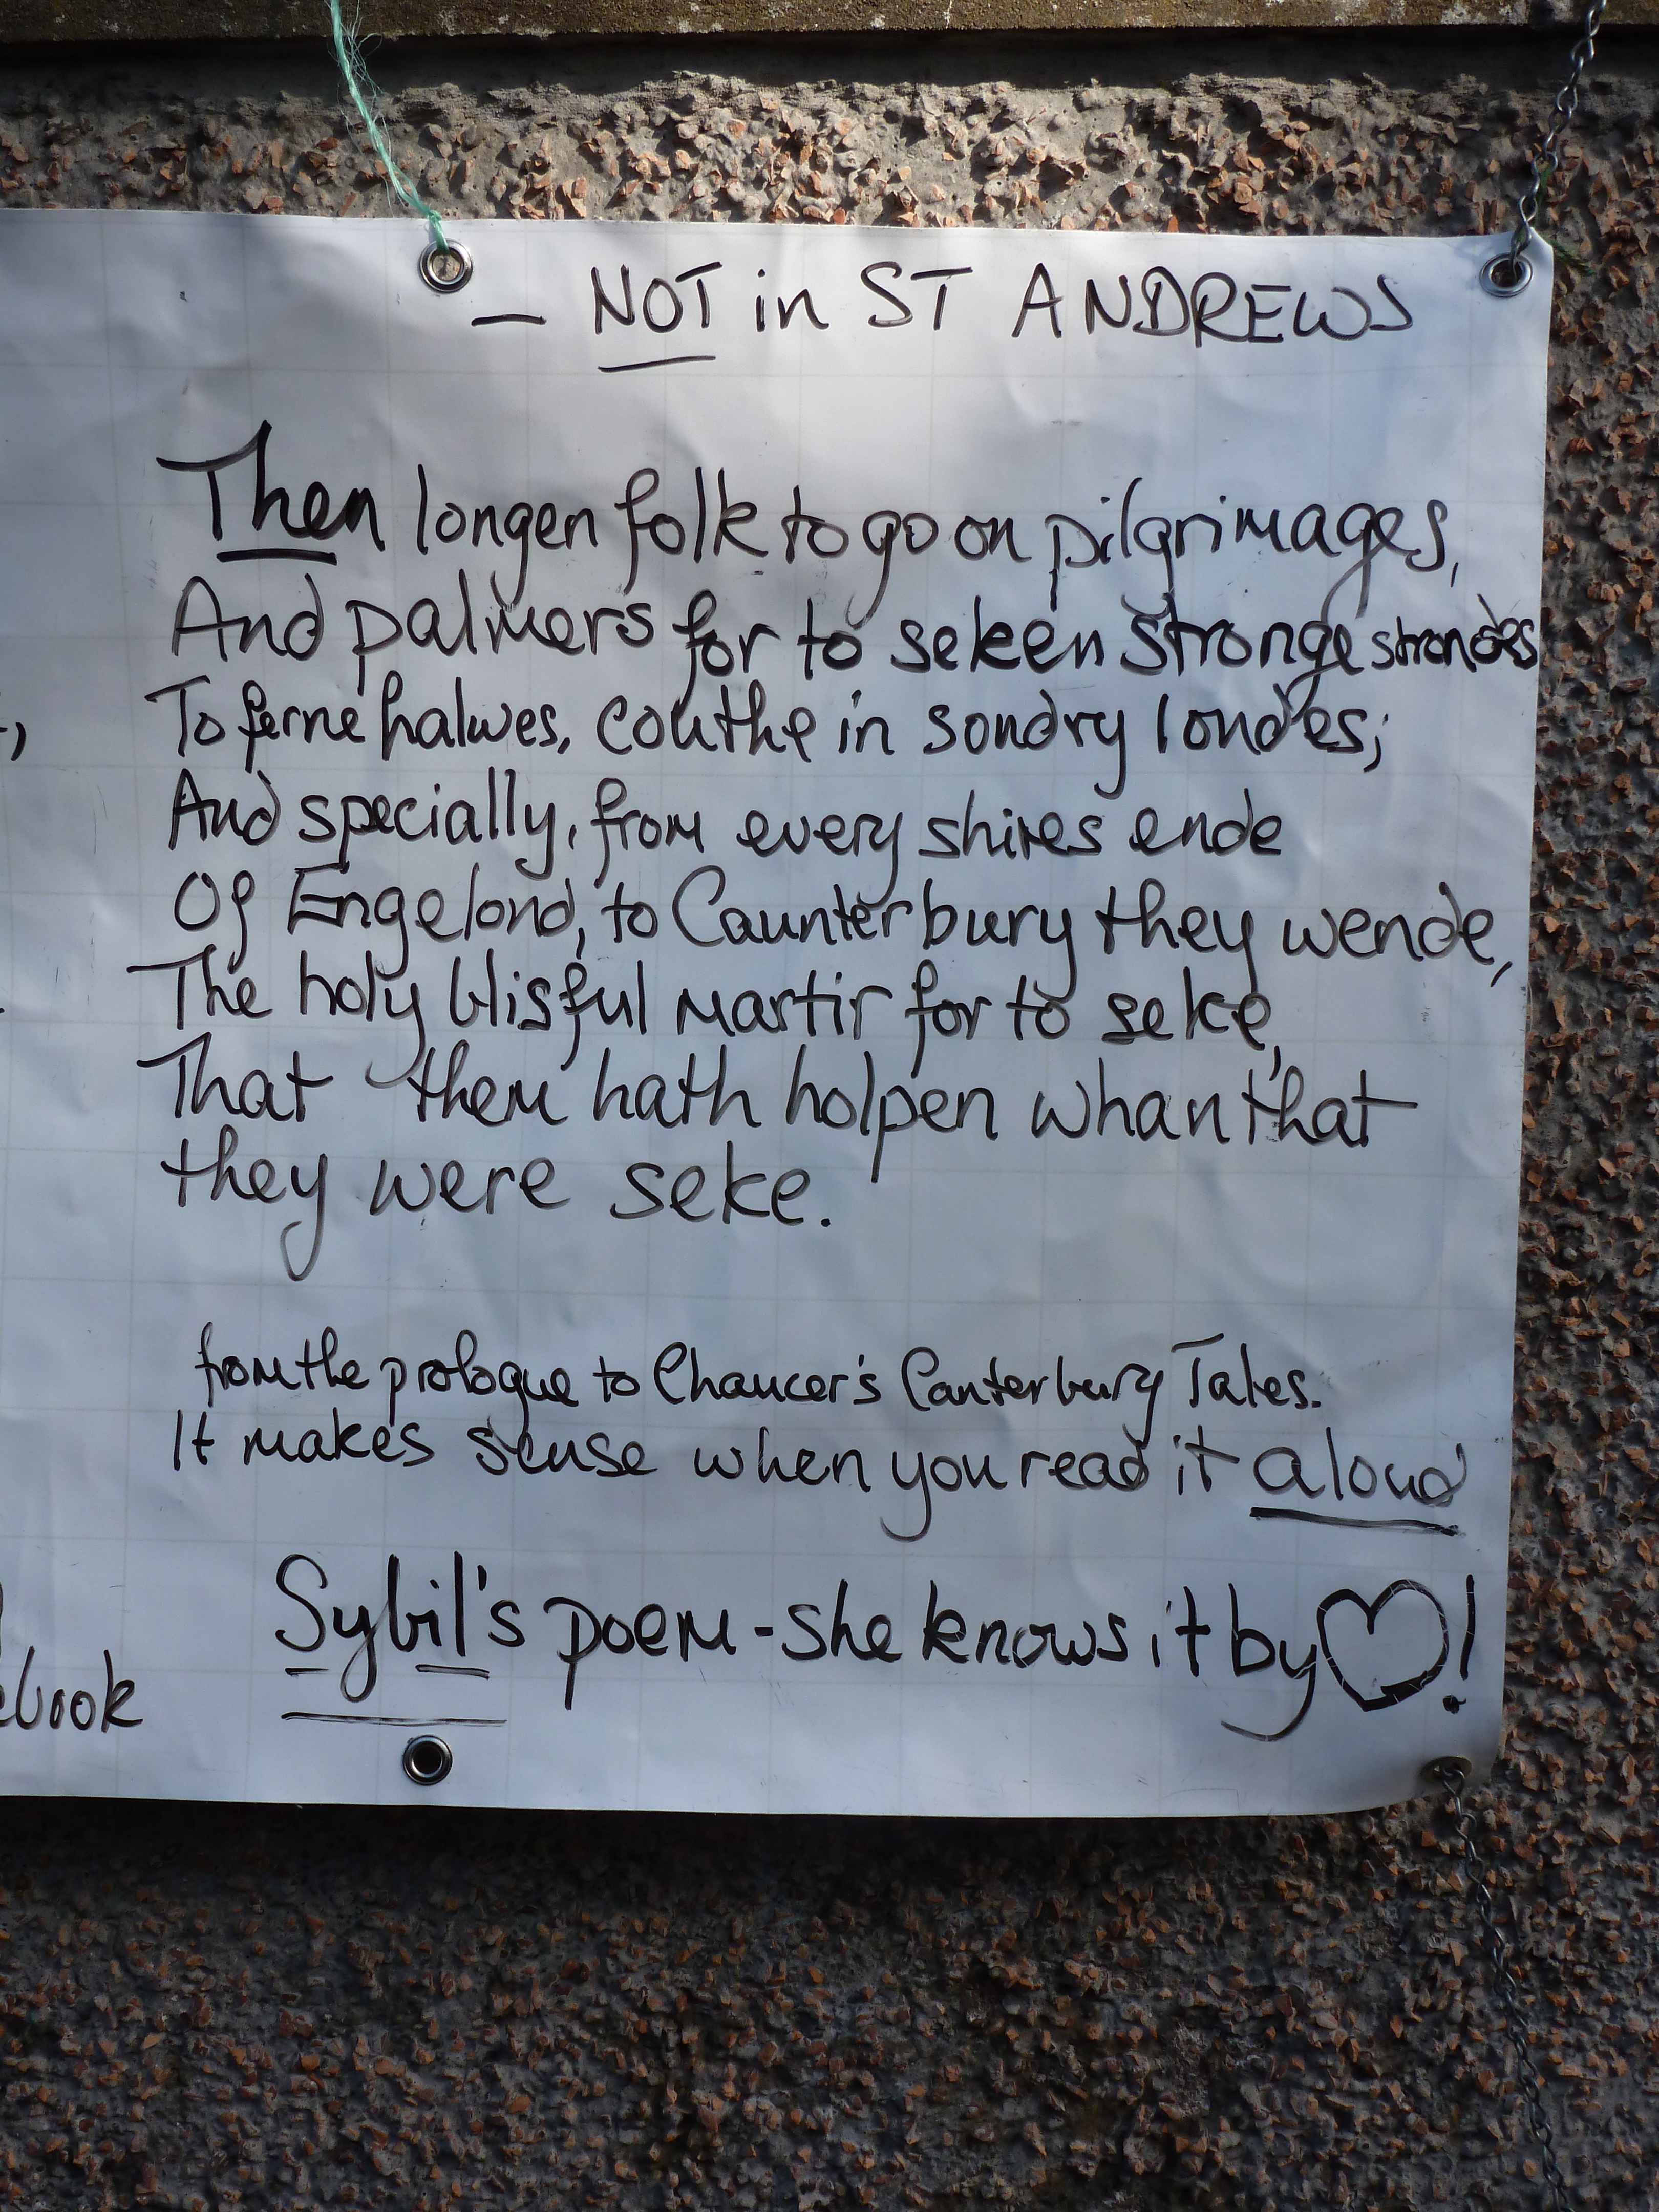 — NOT in ST ANDREWS
Then longen folk to go on pilgrimages,
And palmers for to seken stronge strondes
To ferne halwes, couthe in sondry londes;
And specially, from every shires ende
Of Engelond, to Caunterbury they wende,
The holy blisful martir for to seke,
That them hath holpen whan that
they were seke.
from the prologue to Chaucer's Canterbury Tales.
It makes sense when you read it aloud
Sybil's poem - she knows it by ♡!